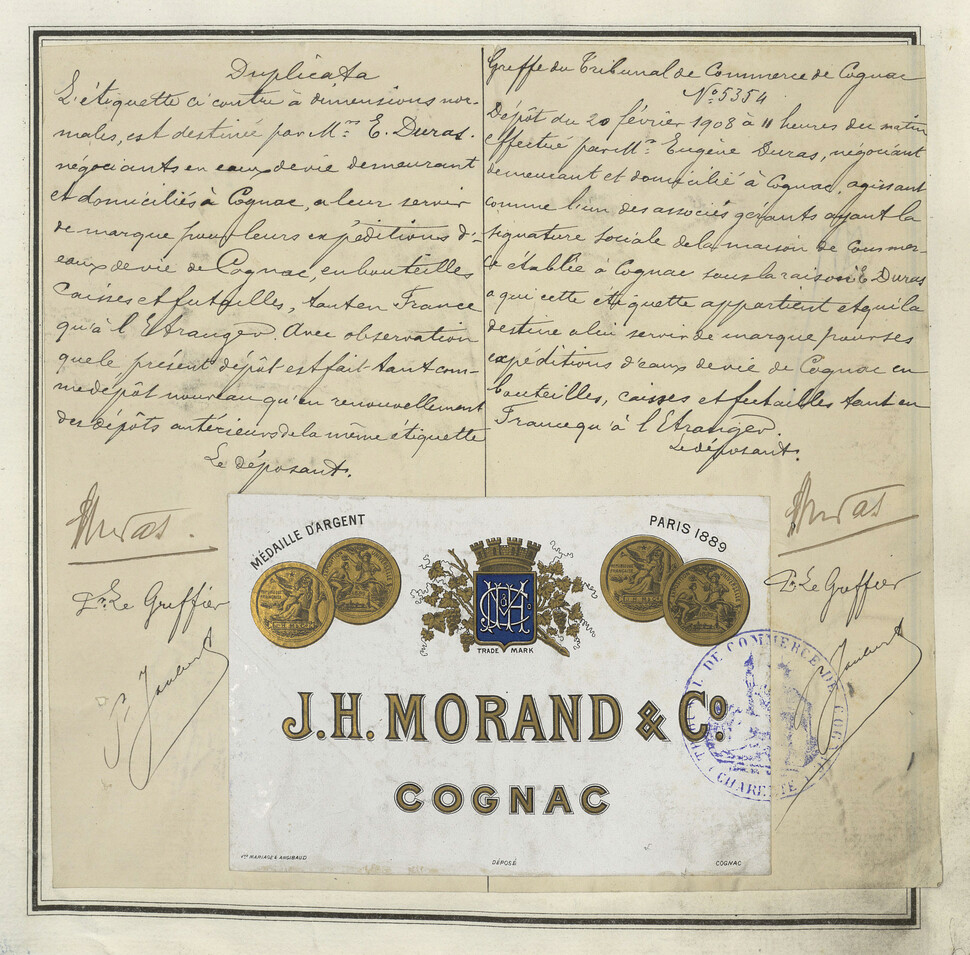 Duplicata
L'étiquette ci contre à dimensions nor-
males, est destinée par Mrs E. Duras.
négociants en eaux de vie demeurant
et domiciliés à Cognac, a leur servir
de marque pour leurs expéditions d'-
eaux de vie de Cognac, en bouteilles
Caisses et futailles, tant en France
qu'à l'Etranger. Avec observation
que le présent dépôt est fait tant com-
me dépôt nouveau qu'en renouvellement
des dépôts antérieurs de la même étiquette
Le déposant.
Duras.
Pr Le Greffier
P. Joubert
Greffe du Tribunal de Commerce de Cognac
No 5354
Dépôt du 20 février 1908 à 11 heures du matin
effectué par Mr Eugène Duras, négociant
demeurant et domicilié à Cognac, agissant
comme l'un des associés gérants ayant la
signature sociale de la maison de Commer-
ce établie à Cognac sous la raison E. Duras
a qui cette étiquette appartient et qui la
destine a lui servir de marque pour ses
expéditions d'eaux de vie de Cognac en
bouteilles, caisses et futailles tant en
France qu'à l'Etranger.
Le déposant.
Duras
Pr Le Greffier
Joubert
MÉDAILLE D'ARGENT
PARIS 1889
TRADE MARK
J.H. MORAND & Co.
COGNAC
Vve MARIAGE & ANGIBAUD
DÉPOSÉ
COGNAC
TRIBUNAL DE COMMERCE DE COGNAC
(CHARENTE)